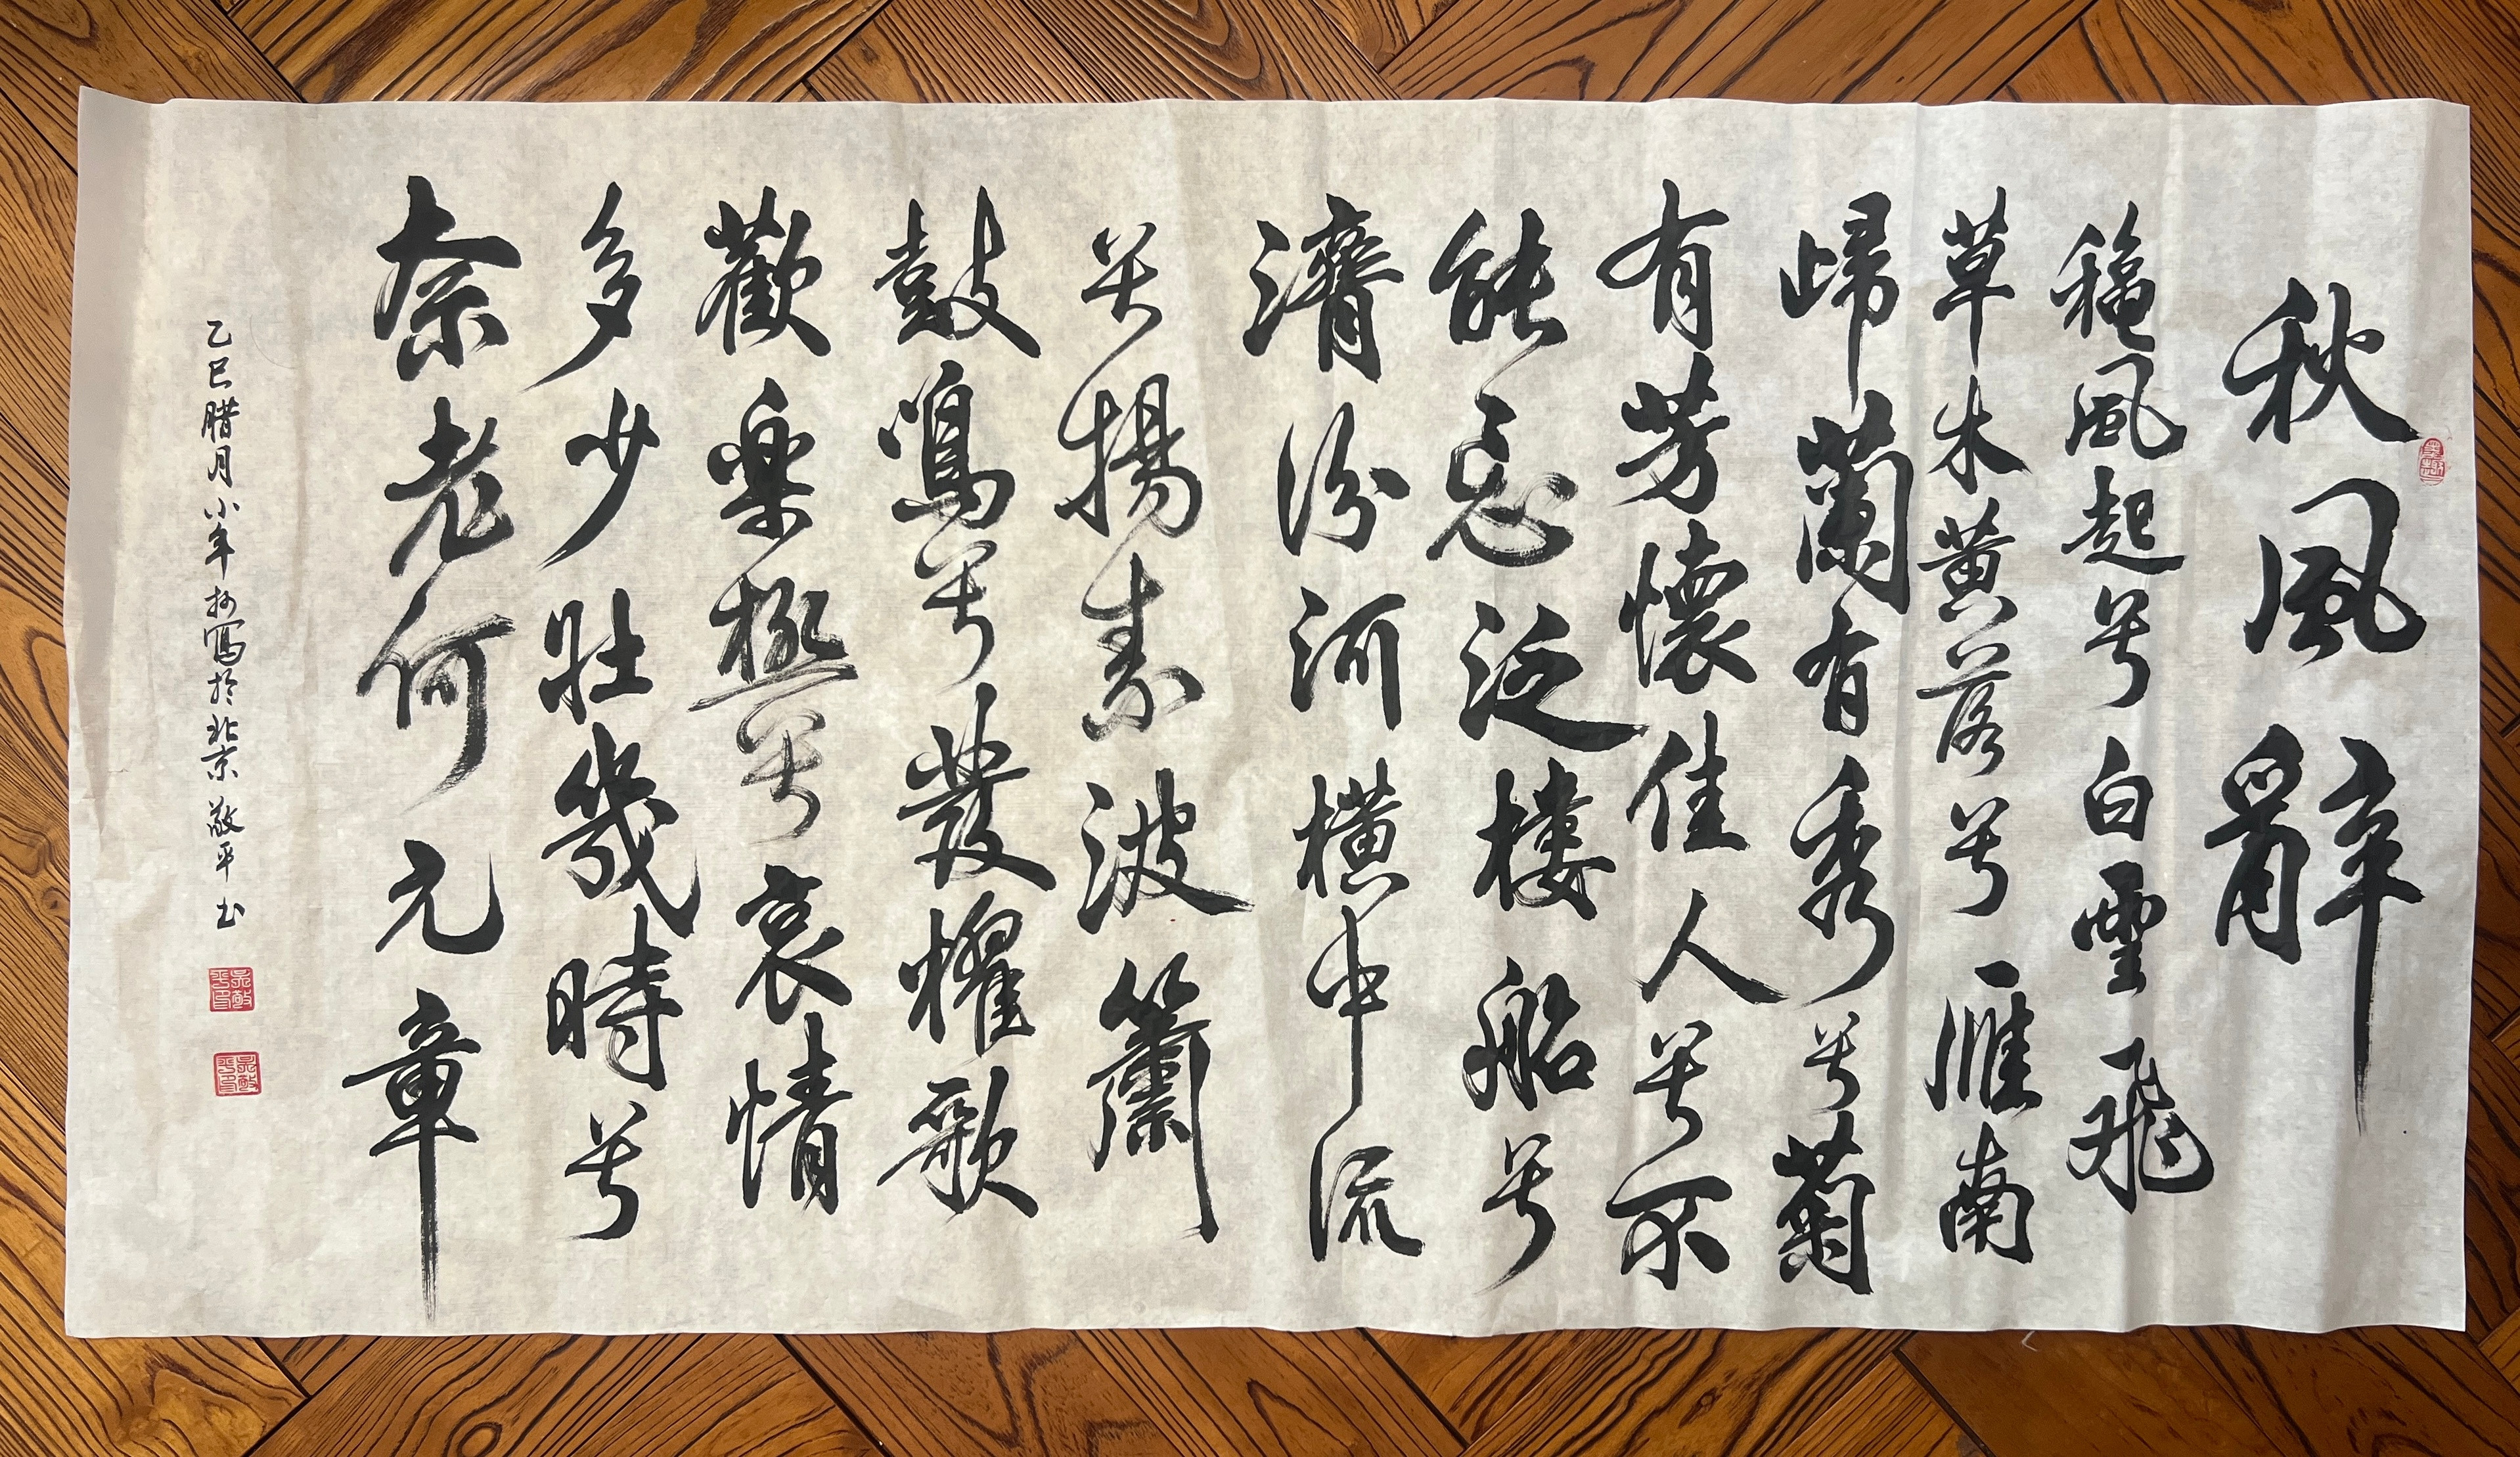 秋風辭
穐風起兮白雲飛
草木黃落兮雁南
歸蘭有秀兮菊
有芳懷佳人兮不
能忘泛樓船兮
濟汾河橫中流
兮揚素波簫
鼓鳴兮發耀歌
歡楽極兮哀情
多少壯幾時兮
奈老何元章
乙巳腊月小年抄寫於北京敬平书